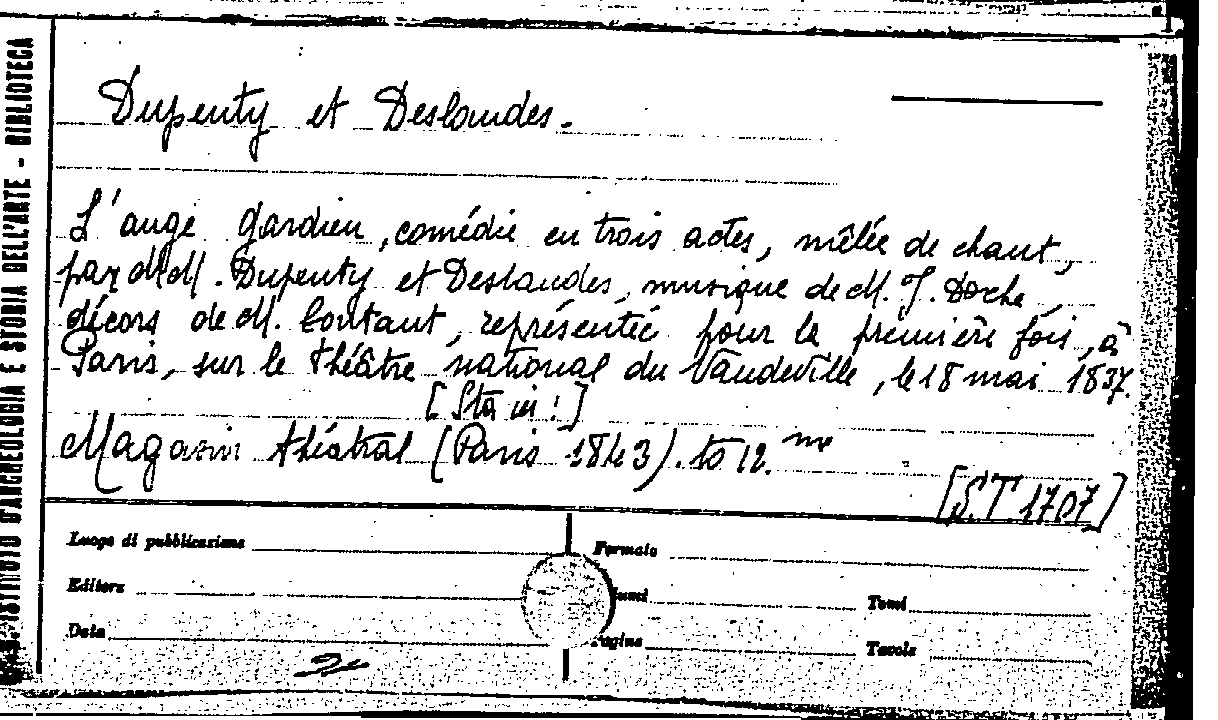 ISTITUTO D'ARCHEOLOGIA E STORIA DELL'ARTE - BIBLIOTECA
Dupenty et Deslandes.
L'ange gardien, comédie en trois actes, mêlée de chant,
par MM. Dupenty et Deslandes, musique de M. J. Doche,
décors de M. Contant, représentée pour la première fois, à
Paris, sur le théâtre national du Vaudeville, le 18 mai 1837.
[Sta in:]
Magasin théatral (Paris 1843). to 12.me
[S.T 1707]
Luogo di pubblicazione
Formato
Editore
Tomi
Data
Pagine
Tavole